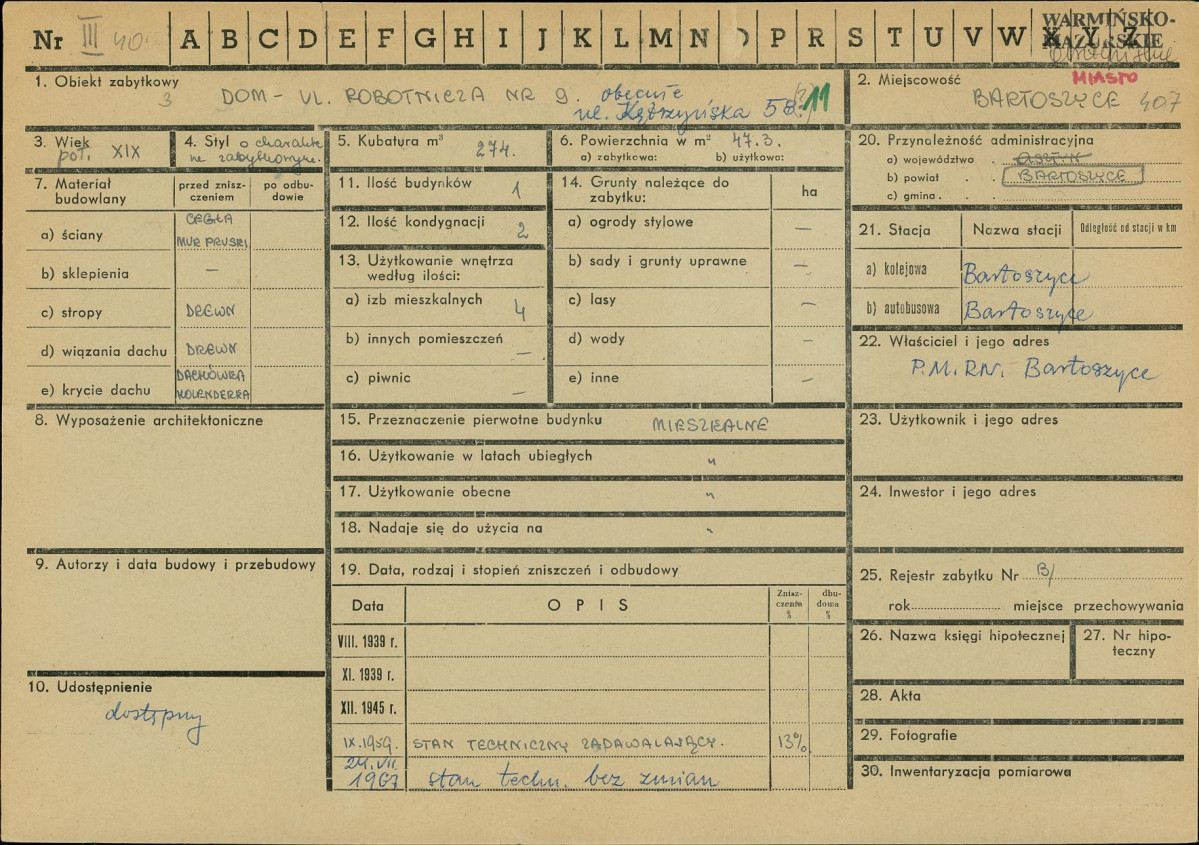 Nr III 40 A B C D E F G H I J K L M N O P R S T U V W X Y Z
WARMIŃSKO-
MAZURSKIE
1. Obiekt zabytkowy
3 DOM - UL. ROBOTNICZA NR 9. obecnie
ul. Kętrzyńska 58. 11
2. Miejscowość
MIASTO
BARTOSZYCE 407
3. Wiek
poł. XIX
4. Styl o charakte
rze zabytkowym.
5. Kubatura m³
274.
6. Powierzchnia w m² 47.3.
a) zabytkowa: b) użytkowa:
20. Przynależność administracyjna
a) województwo . OLSZTYN
b) powiat . . BARTOSZYCE
c) gmina . .
7. Materiał
budowlany
przed znisz-
czeniem
po odbu-
dowie
a) ściany
CEGŁA
MUR PRUSKI
b) sklepienia —
c) stropy DREWN
d) wiązania dachu DREWN
e) krycie dachu
DACHÓWKA
HOLENDERKA
11. Ilość budynków 1
12. Ilość kondygnacji 2
13. Użytkowanie wnętrza
według ilości:
a) izb mieszkalnych 4
b) innych pomieszczeń —
c) piwnic —
14. Grunty należące do
zabytku:
ha
a) ogrody stylowe —
b) sady i grunty uprawne —
c) lasy —
d) wody —
e) inne —
21. Stacja Nazwa stacji Odległość od stacji w km
a) kolejowa Bartoszyce
b) autobusowa Bartoszyce
22. Właściciel i jego adres
P.M.RN. Bartoszyce
8. Wyposażenie architektoniczne
15. Przeznaczenie pierwotne budynku MIESZKALNE
16. Użytkowanie w latach ubiegłych "
17. Użytkowanie obecne "
18. Nadaje się do użycia na "
23. Użytkownik i jego adres
24. Inwestor i jego adres
9. Autorzy i data budowy i przebudowy
19. Data, rodzaj i stopień zniszczeń i odbudowy
Data OPIS
Znisz-
czenia
%
dbu-
dowa
%
VIII. 1939 r.
XI. 1939 r.
XII. 1945 r.
IX.1959. STAN TECHNICZNY ZADAWALAJĄCY. 13%
24.VII.
1967 stan techn. bez zmian
25. Rejestr zabytku Nr B/
rok miejsce przechowywania
26. Nazwa księgi hipotecznej
27. Nr hipo-
teczny
10. Udostępnienie
dostępny
28. Akta
29. Fotografie
30. Inwentaryzacja pomiarowa